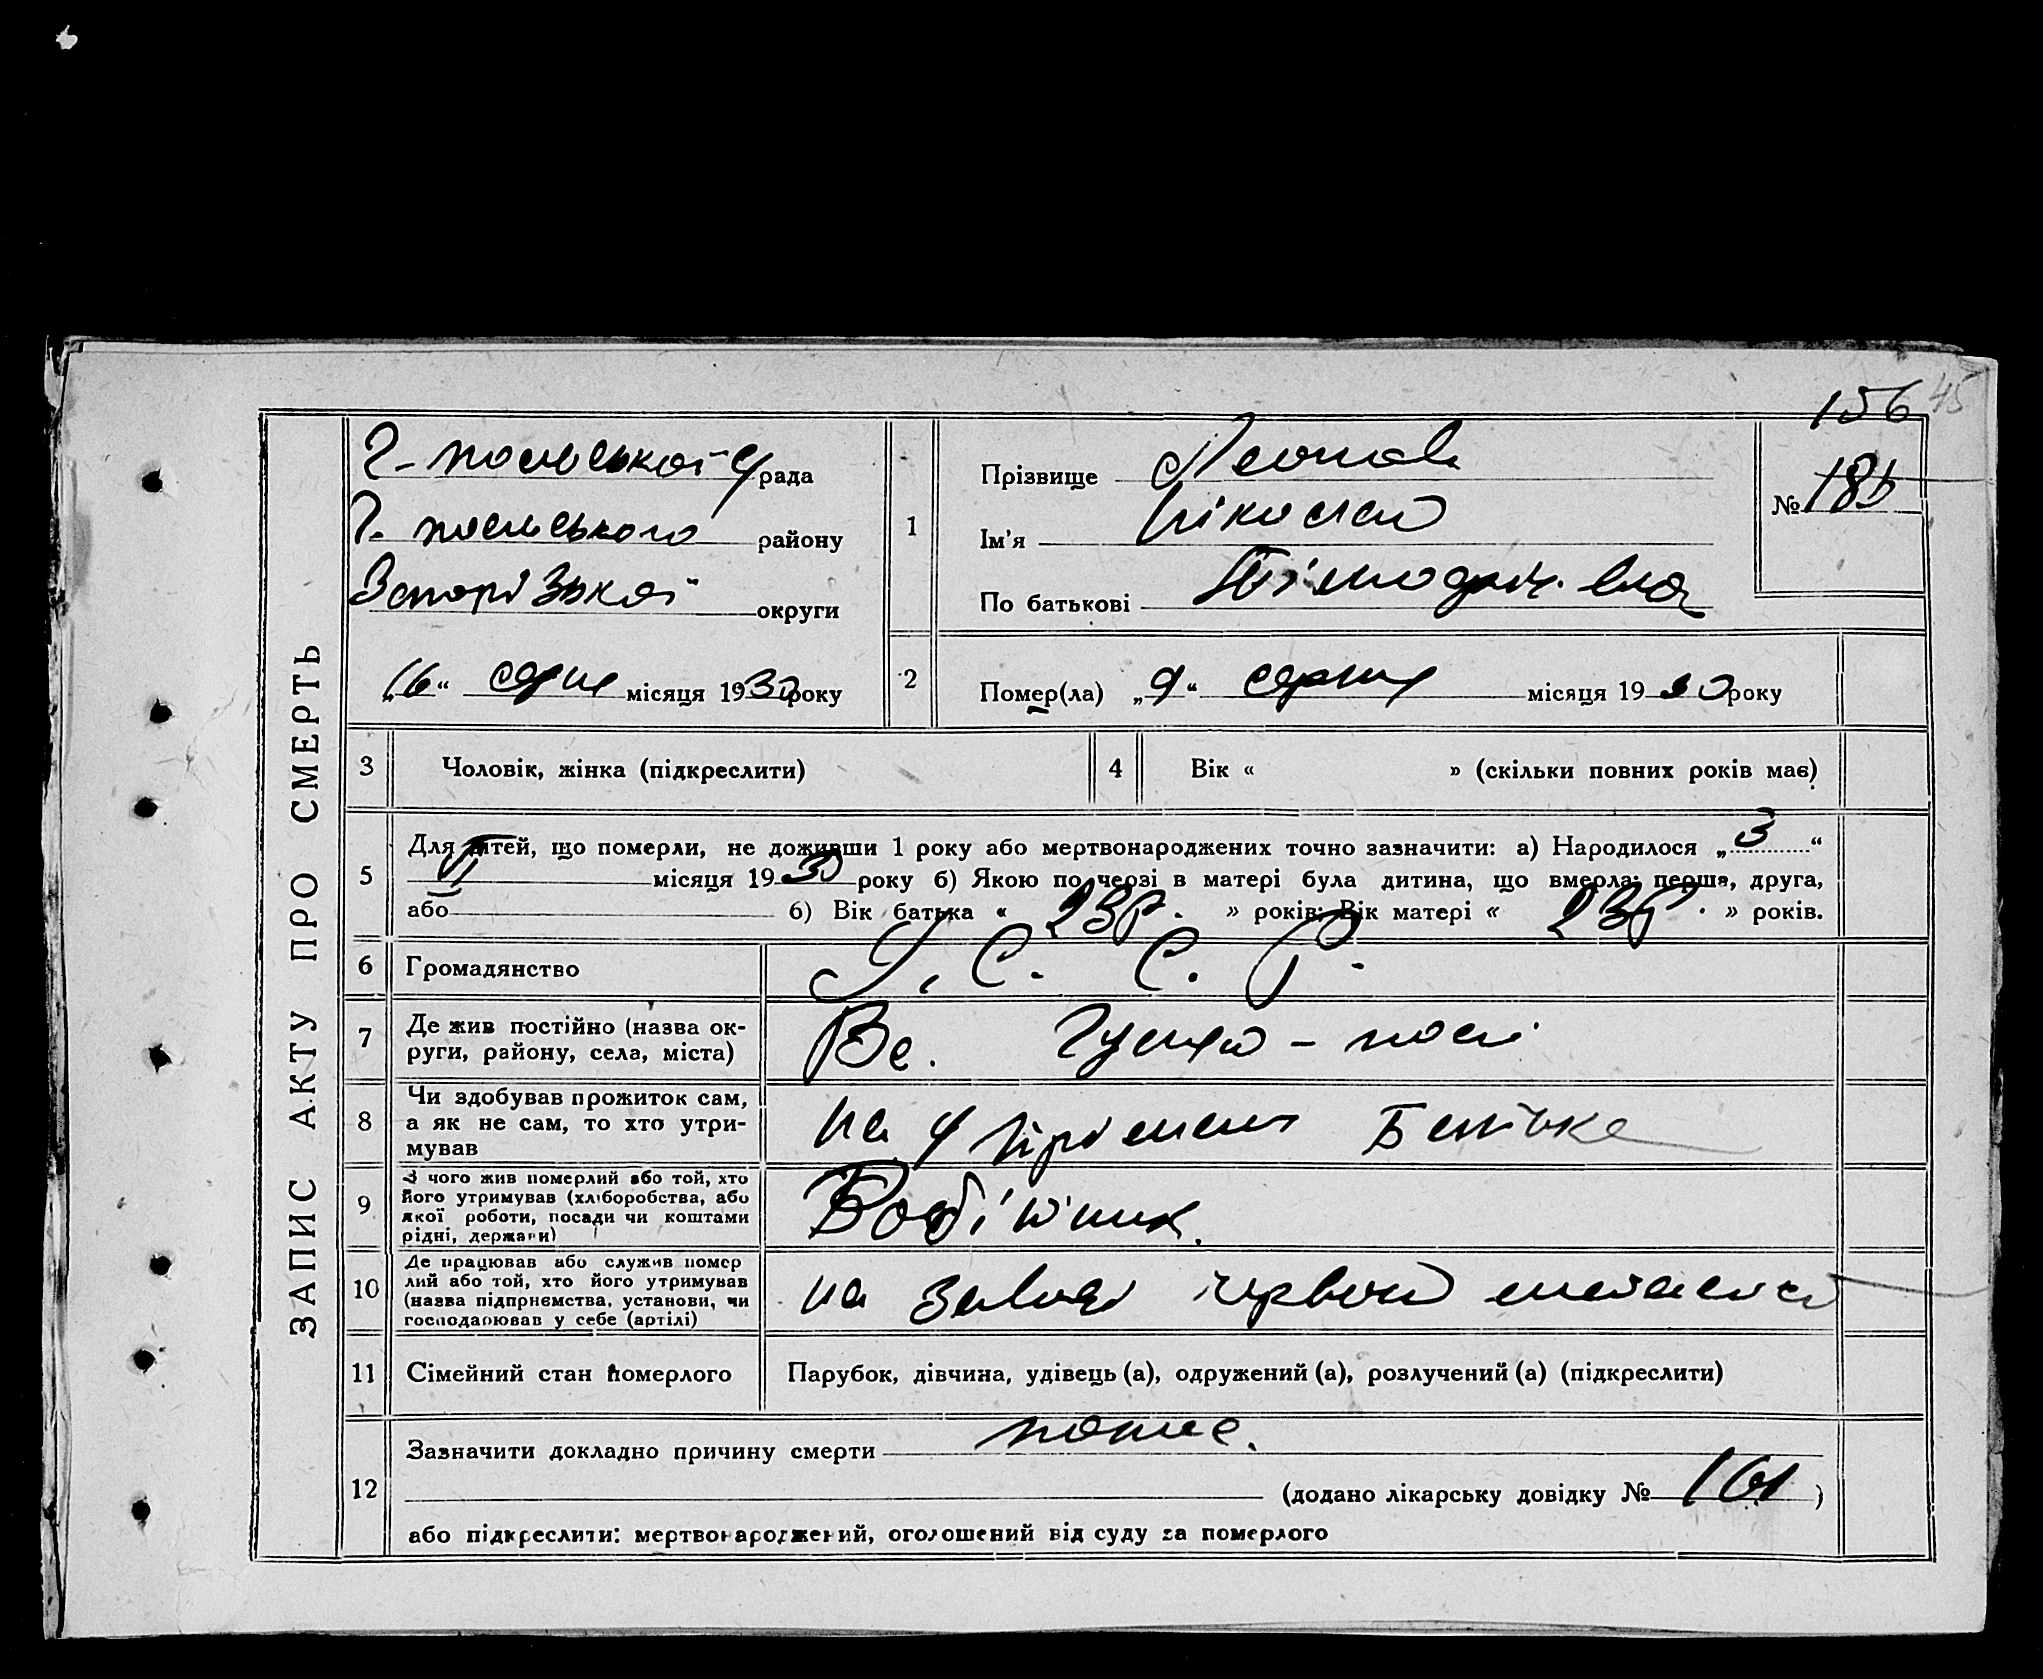 156 45
ЗАПИС АКТУ ПРО СМЕРТЬ
Г-польської рада
Г. польського району
Запорізької округи
„16“ серпня місяця 1930 року
1
Прізвище Леонов
Ім'я Ніколай
По батькові
№ 185
2
Помер(ла) „9“ серпня місяця 1930 року
3 Чоловік, жінка (підкреслити)
4 Вік « » (скільки повних років має)
5
Для дітей, що померли, не доживши 1 року або мертвонароджених точно зазначити: а) Народилося „3“
VI місяця 1930 року б) Якою по черзі в матері була дитина, що вмерла: перша, друга,
або б) Вік батька « 23р. » років; Вік матері « 23р. » років.
6 Громадянство У. С. С. Р.
7 Де жив постійно (назва ок-
руги, району, села, міста)
Гуляй-полі
8 Чи здобував прожиток сам,
а як не сам, то хто утри-
мував
на Батька
9 З чого жив померлий або той, хто
його утримував (хліборобства, або
якої роботи, посади чи коштами
рідні, держави)
Робітник.
10 Де працював або служив помер
лий або той, хто його утримував
(назва підприємства, установи, чи
господарював у себе (артілі)
на заводі червоний металіст
11 Сімейний стан померлого
Парубок, дівчина, удівець (а), одружений (а), розлучений (а) (підкреслити)
12
Зазначити докладно причину смерти понос.
(додано лікарську довідку № 161)
або підкреслити: мертвонароджений, оголошений від суду за померлого